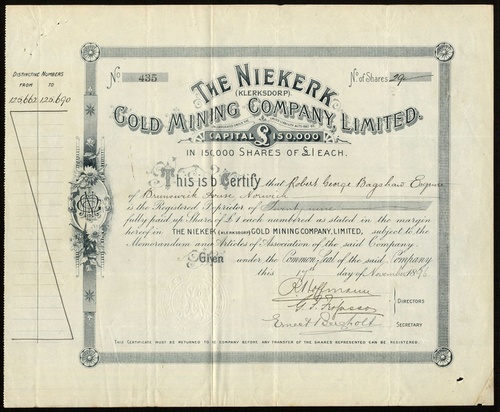 DISTINCTIVE NUMBERS
FROM TO
125662 125690
No 435
No. of Shares 29
THE NIEKERK
(KLERKSDORP)
GOLD MINING COMPANY, LIMITED.
CAPITAL £150,000
IN 150,000 SHARES OF £1 EACH.
This is to Certify that Robert George Bagshaw Esquire
of Brunswick House Norwich
is the Registered Proprietor of Twenty nine
fully paid up Shares of £1 each numbered as stated in the margin
hereof in THE NIEKERK (KLERKSDORP) GOLD MINING COMPANY, LIMITED, subject to the
Memorandum and Articles of Association of the said Company.
Given under the Common Seal of the said Company
this 17th day of November
R Hoffmann
DIRECTORS
Ernest
SECRETARY
THIS CERTIFICATE MUST BE RETURNED TO THE COMPANY BEFORE ANY TRANSFER OF THE SHARES REPRESENTED CAN BE REGISTERED.